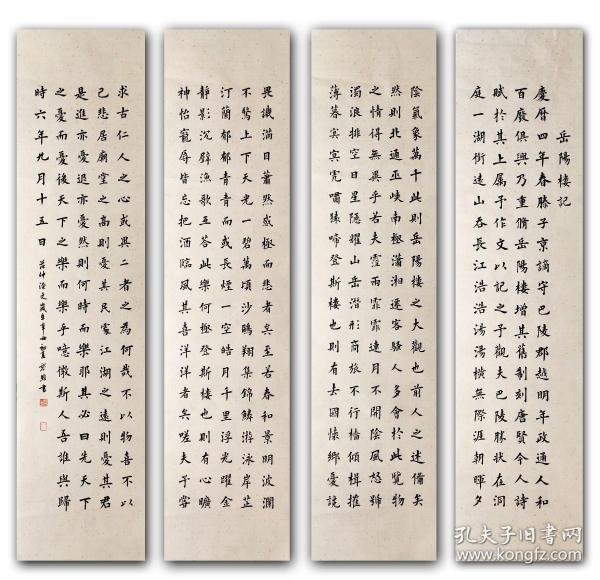 岳陽樓記
慶曆四年春滕子京謫守巴陵郡越明年政通人和
百廢俱興乃重脩岳陽樓增其舊制刻唐賢今人詩
賦於其上属予作文以記之予觀夫巴陵勝狀在洞
庭一湖銜遠山吞長江浩浩湯湯橫無際涯朝暉夕
陰氣象萬千此則岳陽樓之大觀也前人之述備矣
然則北通巫峽南極瀟湘遷客騷人多會於此覽物
之情得無異乎若夫霪雨霏霏連月不開陰風怒號
濁浪排空日星隱耀山岳潛形商旅不行檣傾楫摧
薄暮冥冥虎嘯猿啼登斯樓也則有去國懷鄉憂讒
畏譏滿目蕭然感極而悲者矣至若春和景明波瀾
不驚上下天光一碧萬頃沙鷗翔集錦鱗游泳岸芷
汀蘭郁郁青青而或長煙一空皓月千里浮光躍金
靜影沉璧漁歌互答此樂何極登斯樓也則有心曠
神怡寵辱皆忘把酒臨風其喜洋洋者矣嗟夫予嘗
求古仁人之心或異二者之為何哉不以物喜不以
己悲居廟堂之高則憂其民處江湖之遠則憂其君
是進亦憂退亦憂然則何時而樂耶其必曰先天下
之憂而憂後天下之樂而樂乎噫微斯人吾誰與歸
時六年九月十五日 范仲淹文歲在辛 書
孔夫子旧书网
www.kongfz.com